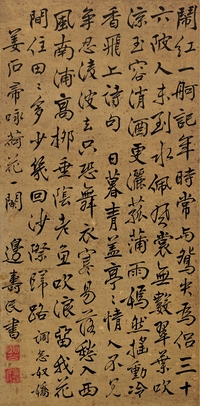 鬧紅一舸記年時常与鴛央為侶三十
六陂人未到水佩風裳無數翠葉吹
涼玉容消酒更灑菰蒲雨嫣然搖動冷
香飛上詩句 日暮青蓋亭亭情人不見
爭忍凌波去只恐舞衣寒易落愁入西
風南浦高柳垂陰老魚吹浪留我花
間住田田多少幾回沙際歸路 調念奴嬌
姜石帚詠荷花一闋 邊壽民書